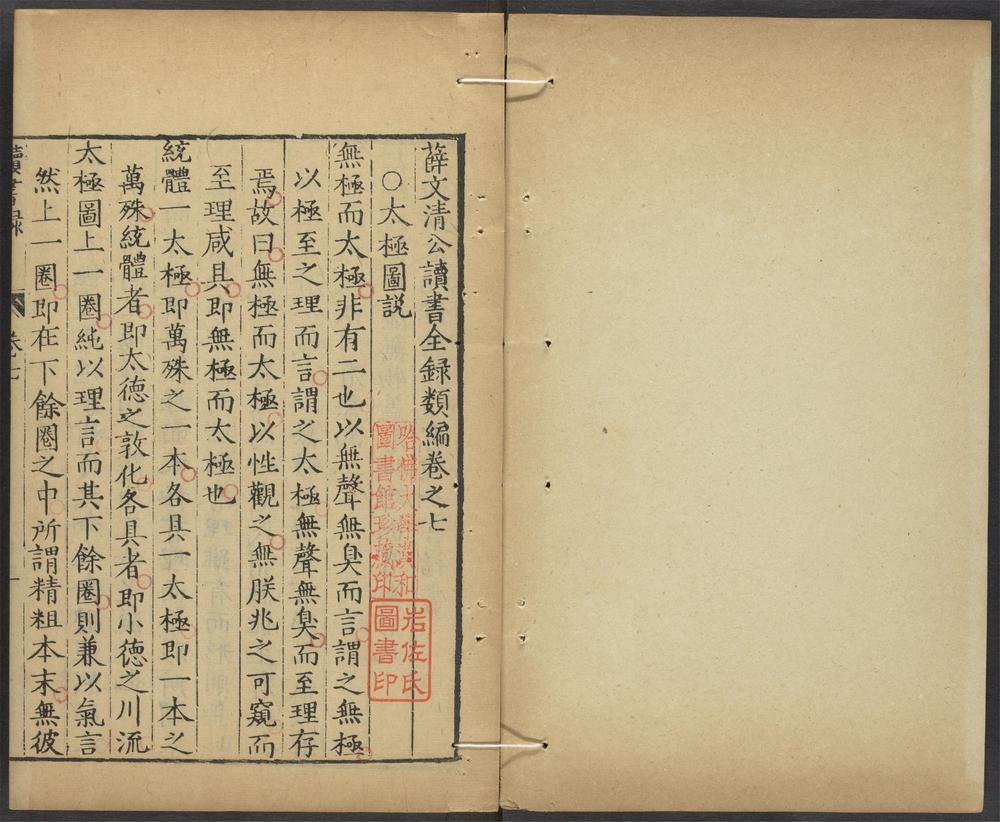 薛文清公讀書全録類編卷之七
○太極圖説
無極而太極非有二也以無聲無臭而言謂之無極
以極至之理而言謂之太極無聲無臭而至理存
焉故曰無極而太極以性觀之無朕兆之可窺而
至理咸具即無極而太極也
統體一太極即萬殊之一本各具一太極即一本之
萬殊統體者即太德之敦化各具者即小德之川流
太極圖上一圈純以理言而其下餘圈則兼以氣言
然上一圈即在下餘圈之中所謂精粗本末無彼
讀書録
卷七
一
哈佛大學漢和
圖書館珍藏印
岩佐氏
圖書印